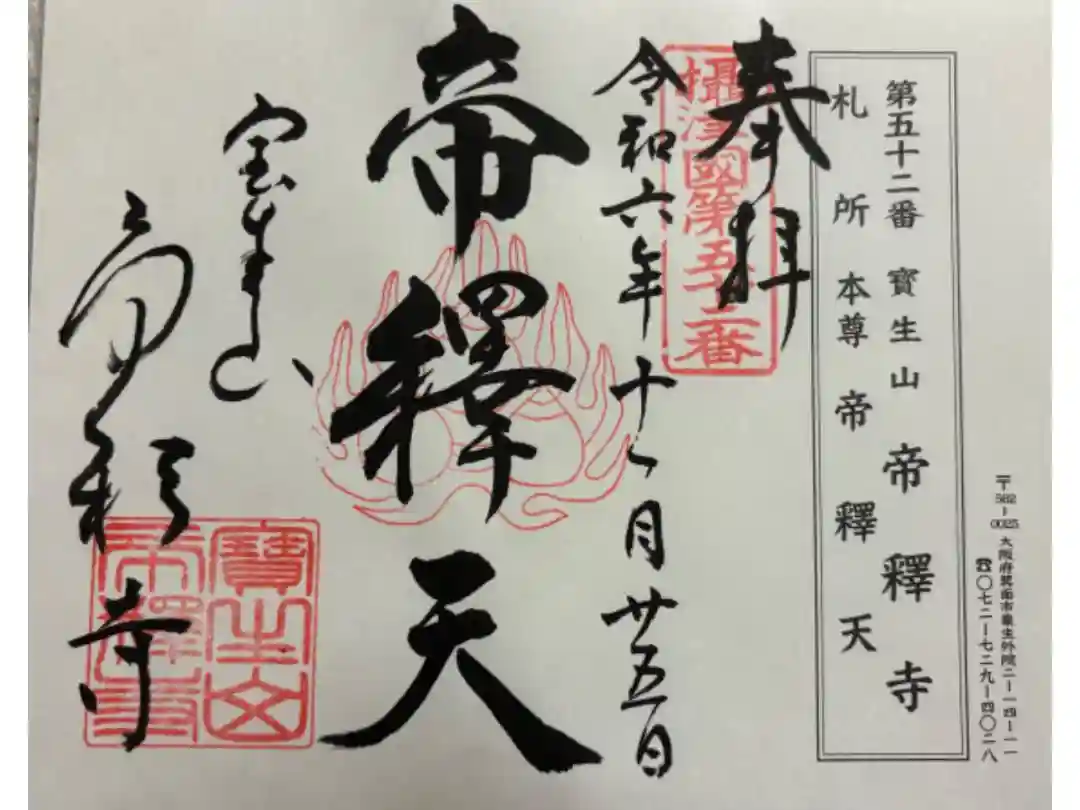 〒562-0025 大阪府箕面市粟生外院二-一四-一一
☎〇七二-七二九-四〇二八
第五十二番 寶生山 帝釋寺
札所本尊 帝釋天
奉拝
攝津國第五十二番
令和六年十一月廿五日
帝釋天
宝生山
帝釈寺
寶生山
帝釋寺